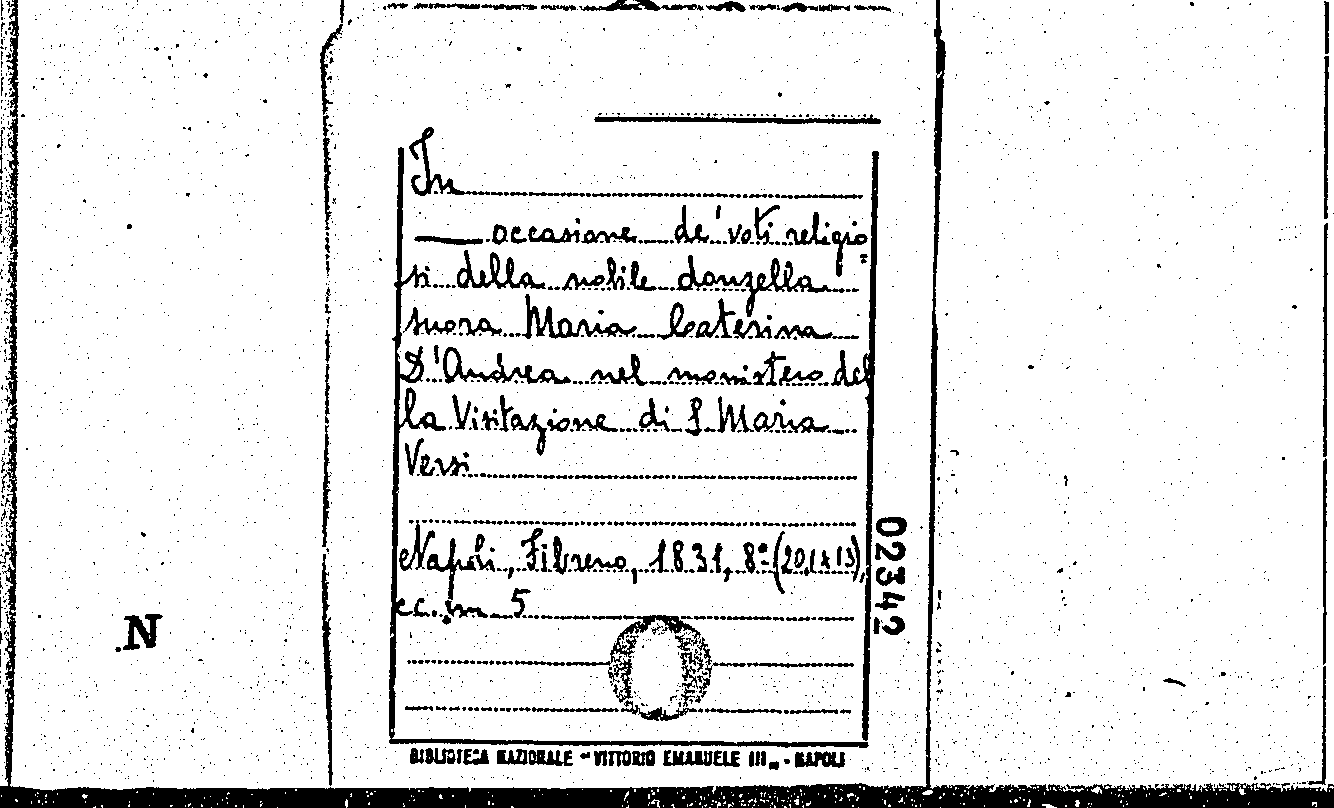 In
occasione de' voti religio
si della nobile donzella
suora Maria Caterina
D'Andrea nel monistero del
la Visitazione di S. Maria
Versi
Napoli, Fibreno, 1831, 8º (20,1x13),
cc. in. 5
02342
N
BIBLIOTECA NAZIONALE "VITTORIO EMANUELE III" - NAPOLI